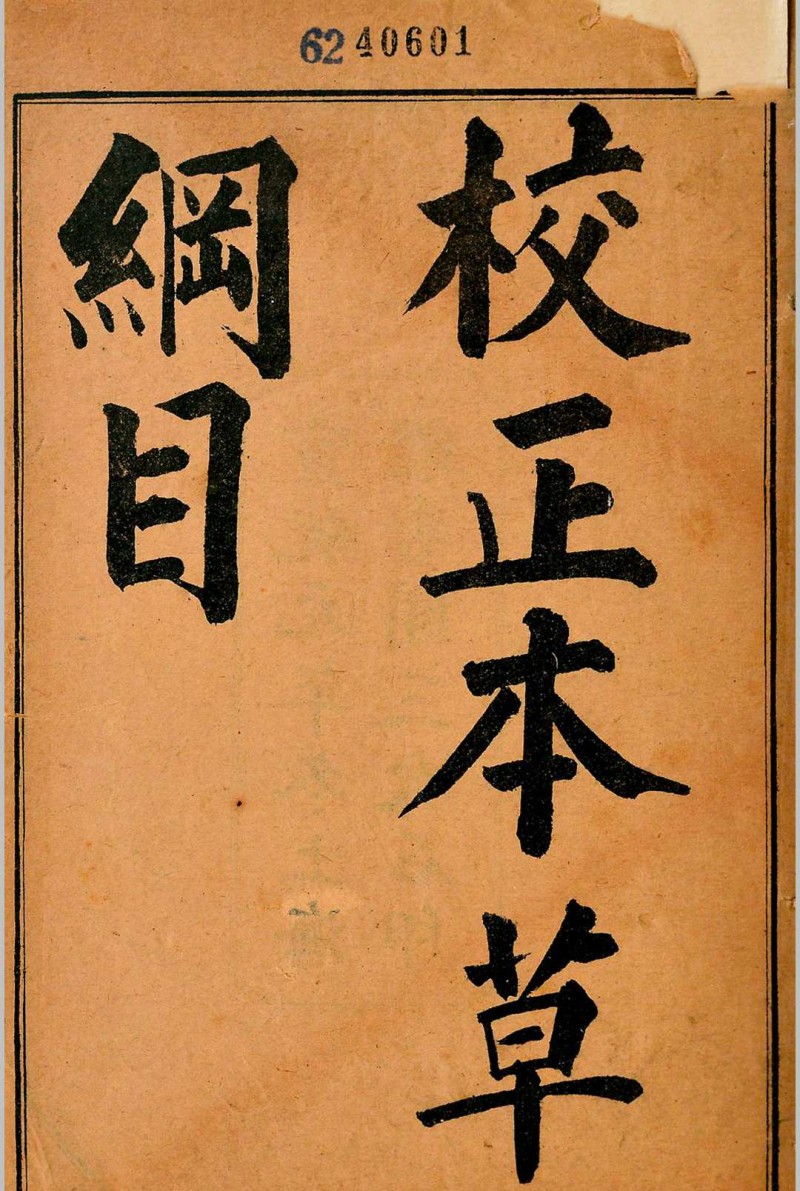 6240601
校正本草
綱目